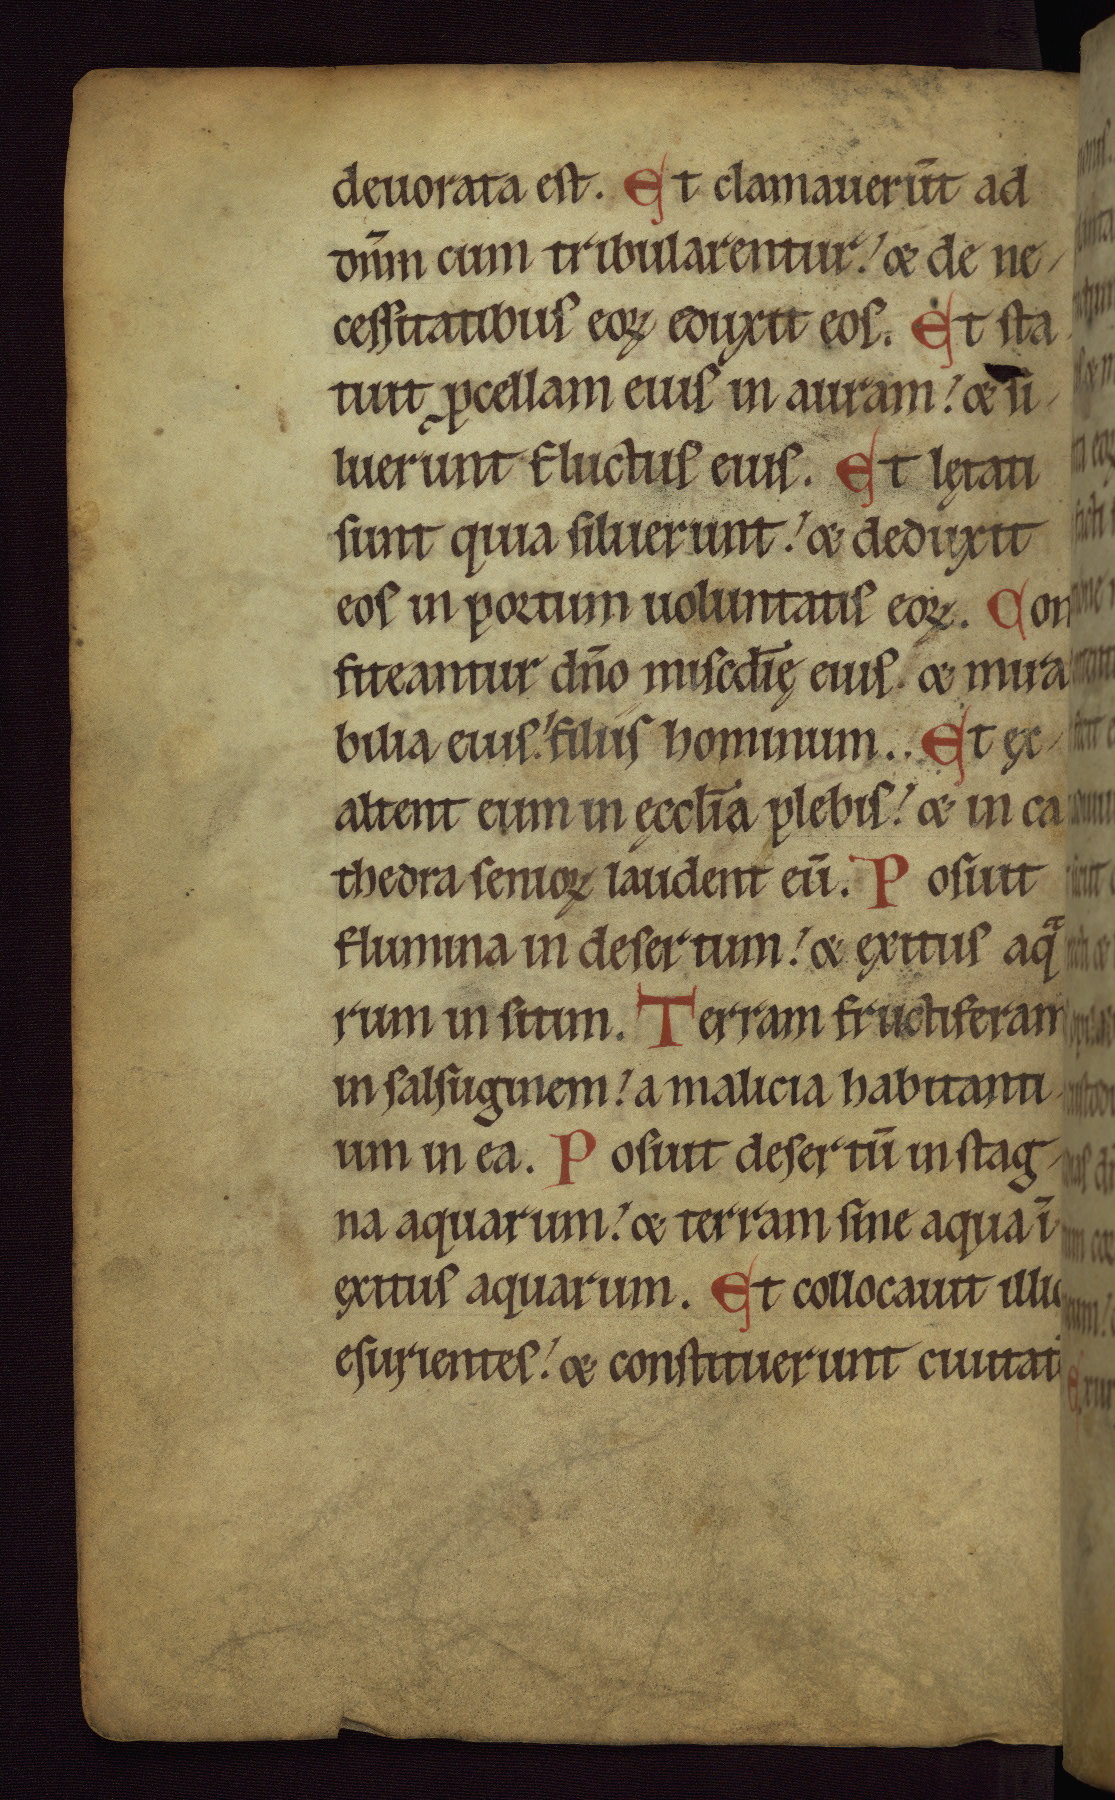 deuorata est. Et clamauerūt ad
dn̄m cum tribularentur! & de ne-
cessitatibus eoꝝ eduxit eos. Et sta
tuit ꝓcellam eius in auram! & si-
luerunt fluctus eius. Et lętati
sunt quia siluerunt! & deduxit
eos in portum uoluntatis eoꝝ. Con
fiteantur dn̄o misc̄dię eius. & mira
bilia eius! filiis hominum.. Et ęx-
altent eum in ęccl̄ia plebis! & in ca
thedra senioꝝ laudent eū. Posuit
flumina in desertum! & exitus aqͣ
rum in sitim. Terram fructiferam
in salsuginem! a malicia habitanti-
um in ea. Posuit desertū in stag-
na aquarum! & terram sine aqua ī
exitus aquarum. Et collocauit illic
esurientes! & constituerunt ciuitat